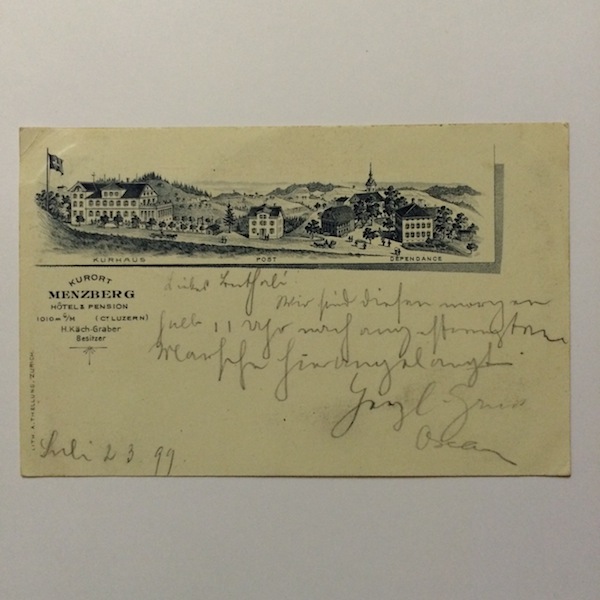 KURHAUS POST DEPENDANCE
KURORT
MENZBERG
HÔTEL & PENSION
1010 m ü/M (Ct LUZERN)
H. Käch-Graber
Besitzer
LITH. A. THELLUNG, ZÜRICH.
Liebes
Wir sind diesen morgen
halb 11 Uhr nach angestrengtem
Marsche hier angelangt.
Herzl. Gruss
Oscar
Juli 23. 99